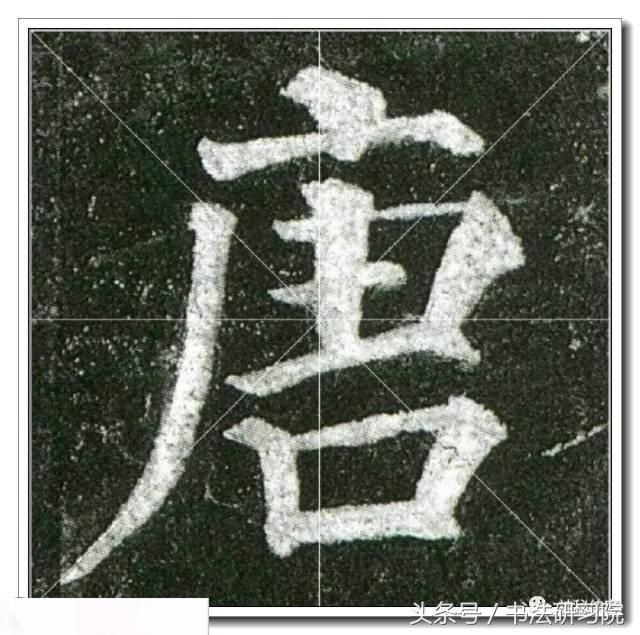 唐
头条号 / 书法研习院